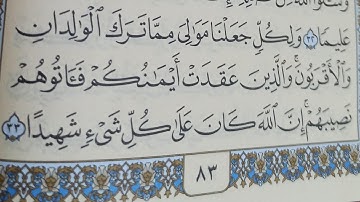 وَسْـَٔلُوا۟ ٱللَّهَ مِن
عَلِيمًا ٣٢ وَلِكُلٍّ جَعَلْنَا مَوَٰلِىَ مِمَّا تَرَكَ ٱلْوَٰلِدَانِ
وَٱلْأَقْرَبُونَ وَٱلَّذِينَ عَقَدَتْ أَيْمَٰنُكُمْ فَـَٔاتُوهُمْ
نَصِيبَهُمْ إِنَّ ٱللَّهَ كَانَ عَلَىٰ كُلِّ شَىْءٍ شَهِيدًا ٣٣
٨٣